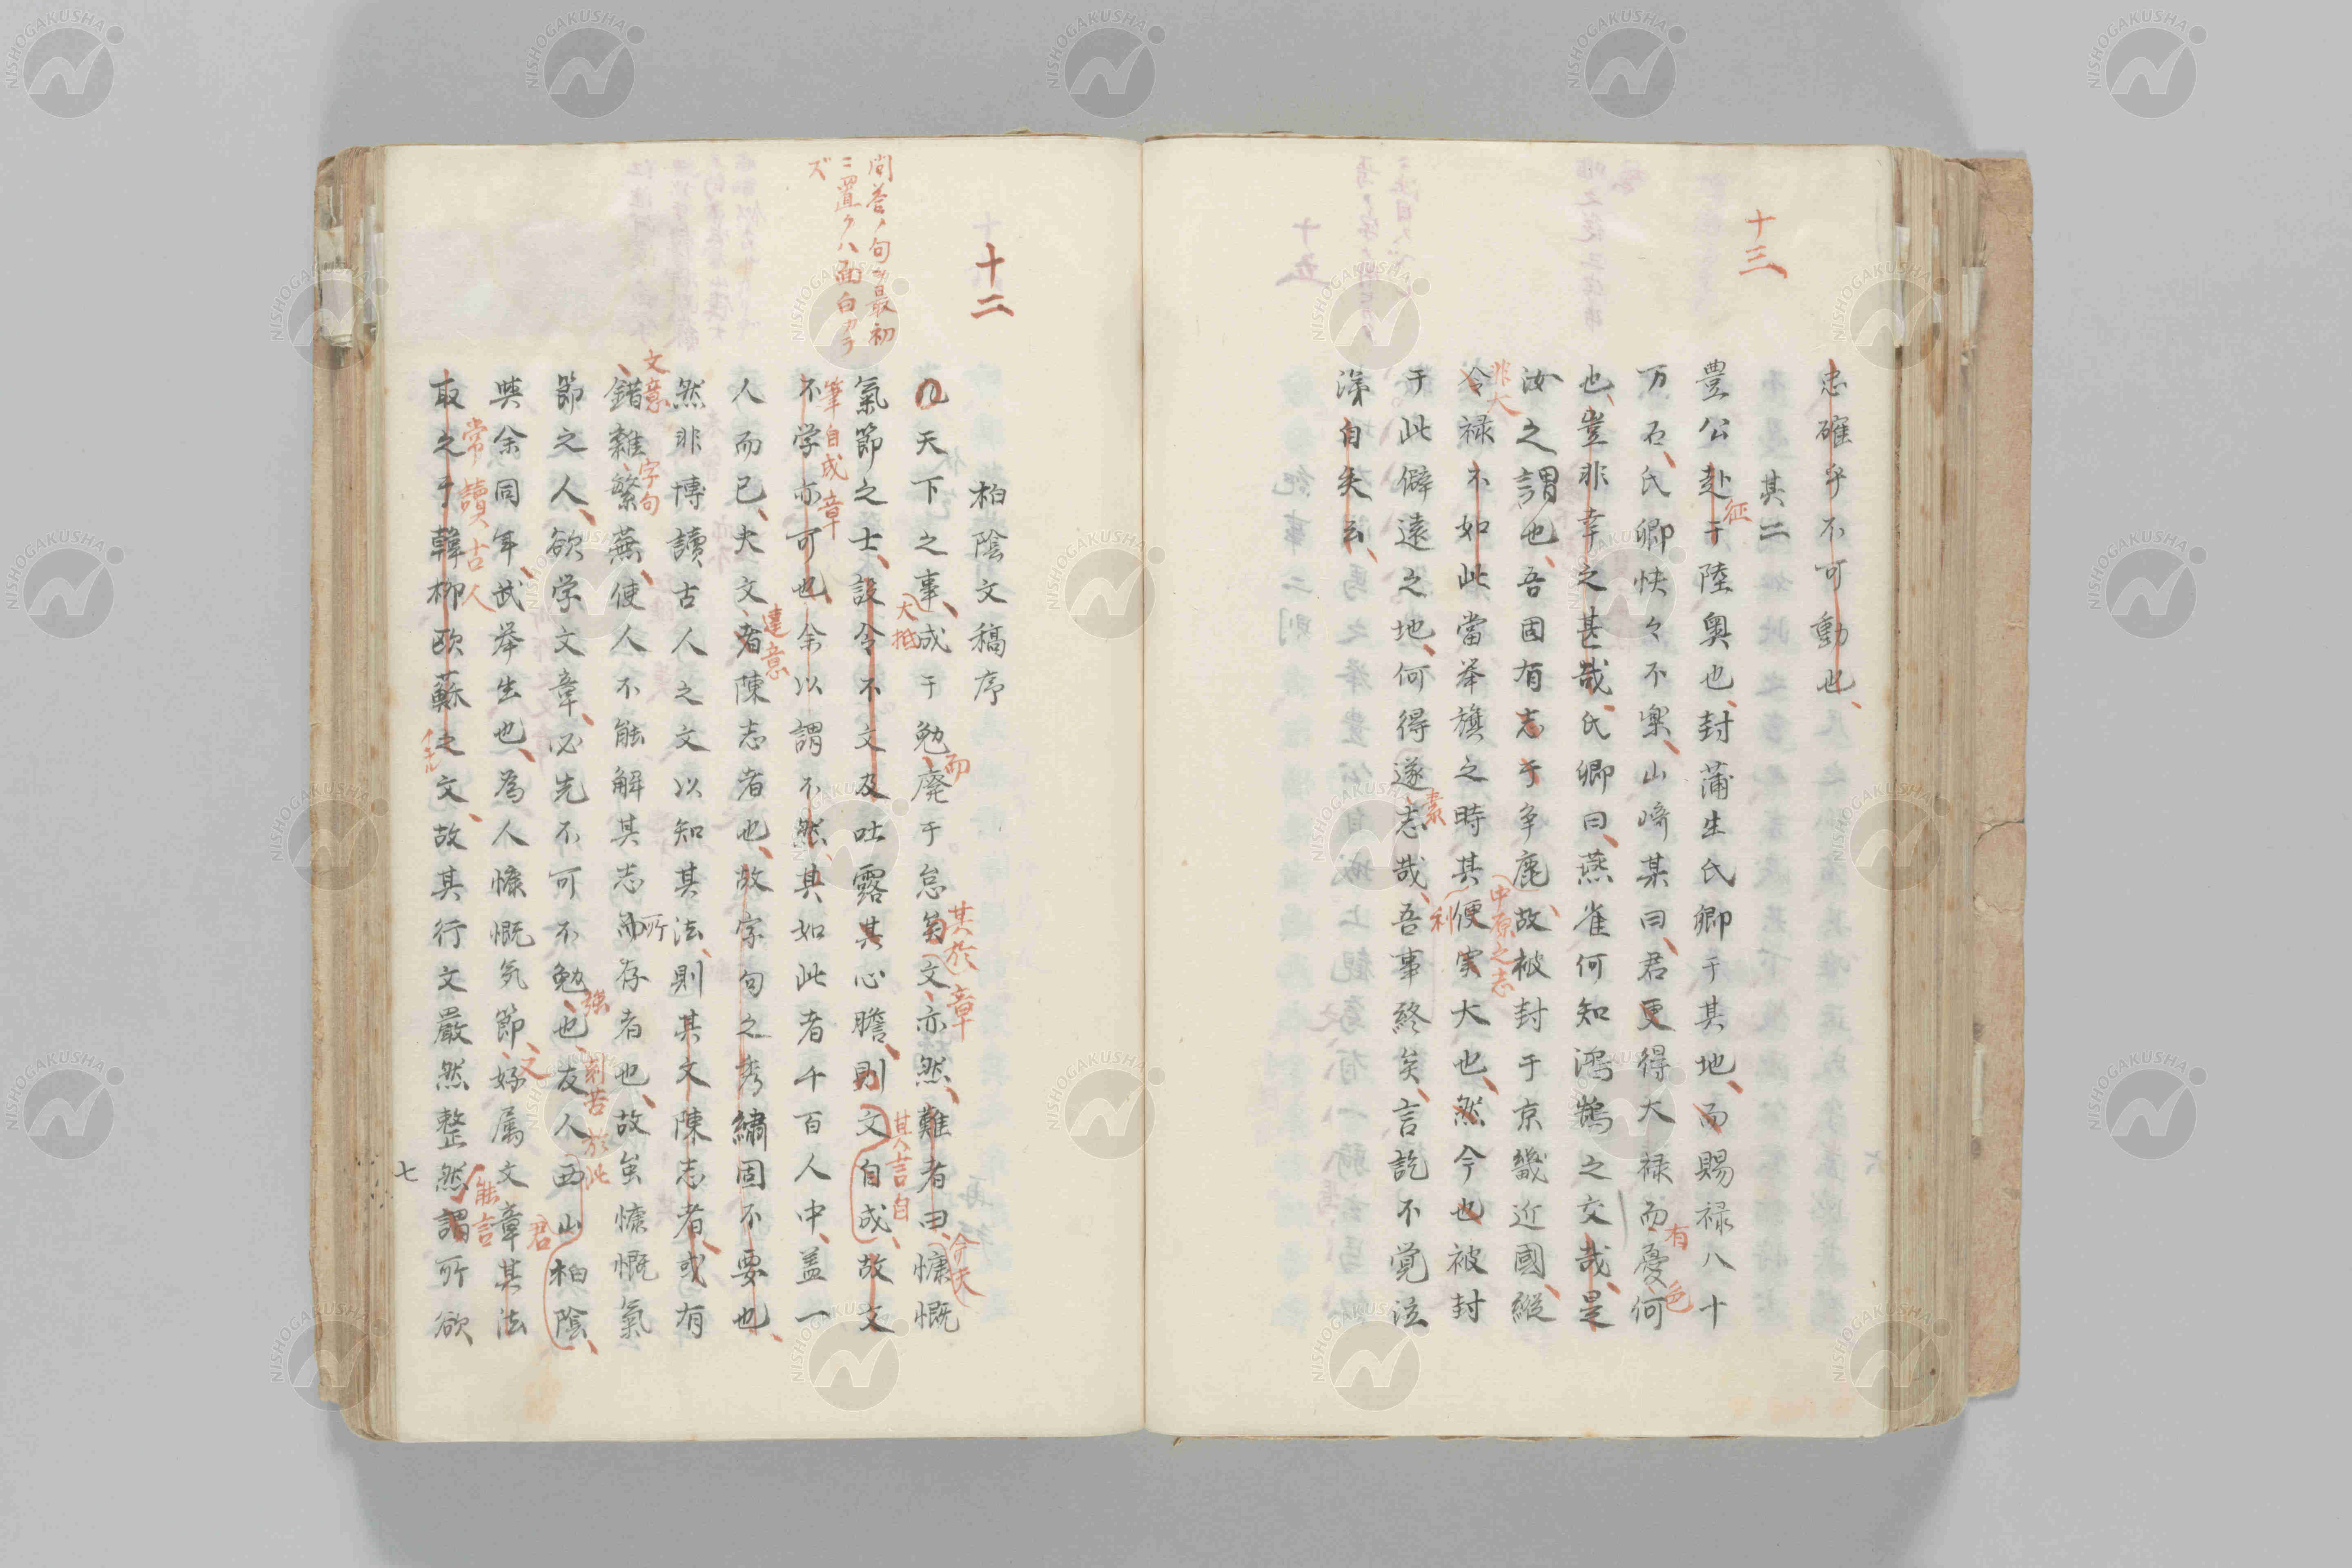 十三
忠確乎不可動也、
其二
豊公赴于陸奥也、封蒲生氏卿于其地、而賜禄八十
征
万石、氏卿怏々不楽、山﨑某曰、君更得大禄而憂何
有
色
也、豈非幸之甚哉、氏卿曰、燕雀何知鴻鵠之交哉、是
汝之謂也、吾固有志于争鹿、故被封于京畿近國、縦
中原之志
非大
令禄不如此當举旗之時其便実大也、然今也被封
利
于此僻遠之地、何得遂志哉、吾事終矣、言訖不覚泣
素
涕自矣云、
十二
問答ノ句ヲ最初
ニ置クハ面白カラ
ズ
柏陰文稿序
凡天下之事、成于勉、廃于怠矣、文亦然、難者曰、慷慨
而
其於
章
今夫
氣節之士、設令不文及吐露其心膽、則文自成、故文
大抵
其言自
不学亦可也、余以謂不然、其如此者千百人中、盖一
筆自成章
人而已、夫文者陳志者也、故字句之秀繡固不要也、
達意
然非博讀古人之文以知其法、則其文陳志者、或有
錯雜繁蕪、使人不能解其志所存者也、故虽慷慨氣
文意
字句
節之人、欲学文章、必先不可不勉也、友人西山柏陰、
強
刻苦於此
君
與余同年、武举生也、為人慷慨気節、好属文章其法
又
能言
取之于韓柳欧蘇之文、故其行文嚴然整然謂所欲
常讀古人
七
NISHOGAKUSHA